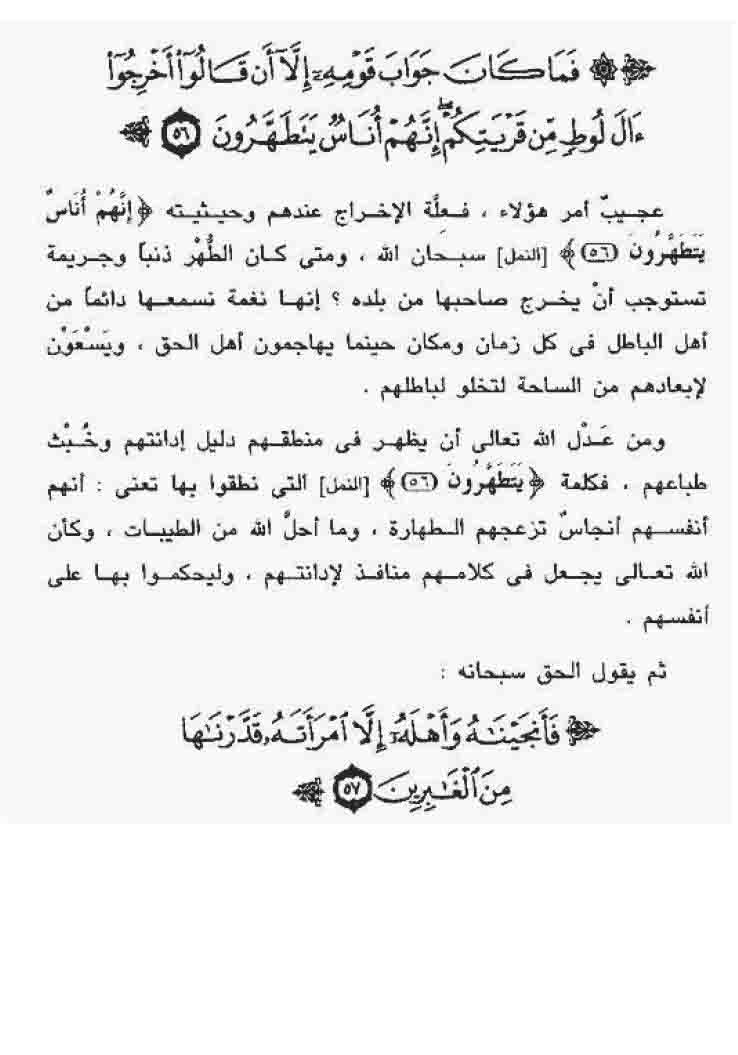 فَمَا كَانَ جَوَابَ قَوْمِهِۦٓ إِلَّآ أَن قَالُوٓا۟ أَخْرِجُوٓا۟
ءَالَ لُوطٍ مِّن قَرْيَتِكُمْ ۖ إِنَّهُمْ أُنَاسٌ يَتَطَهَّرُونَ ٥٦
عجيبٌ أمر هؤلاء ، فعلَّة الإخراج عندهم وحيثيته ﴿إِنَّهُمْ أُنَاسٌ
يَتَطَهَّرُونَ (٥٦)﴾ [النمل] سبحان الله ، ومتى كان الطُّهْر ذنباً وجريمة
تستوجب أنْ يخرج صاحبها من بلده ؟ إنها نغمة نسمعها دائماً من
أهل الباطل فى كل زمان ومكان حينما يهاجمون أهل الحق ، ويَسْعَوْن
لإبعادهم من الساحة لتخلو لباطلهم .
ومن عَدْل الله تعالى أن يظهر فى منطقهم دليل إدانتهم وخُبْث
طباعهم ، فكلمة ﴿يَتَطَهَّرُونَ (٥٦)﴾ [النمل] التى نطقوا بها تعنى : أنهم
أنفسهم أنجاسٌ تزعجهم الطهارة ، وما أحلَّ الله من الطيبات ، وكأن
الله تعالى يجعل فى كلامهم منافذ لإدانتهم ، وليحكموا بها على
أنفسهم .
ثم يقول الحق سبحانه :
فَأَنجَيْنَٰهُ وَأَهْلَهُۥٓ إِلَّا ٱمْرَأَتَهُۥ قَدَّرْنَٰهَا
مِنَ ٱلْغَٰبِرِينَ ٥٧